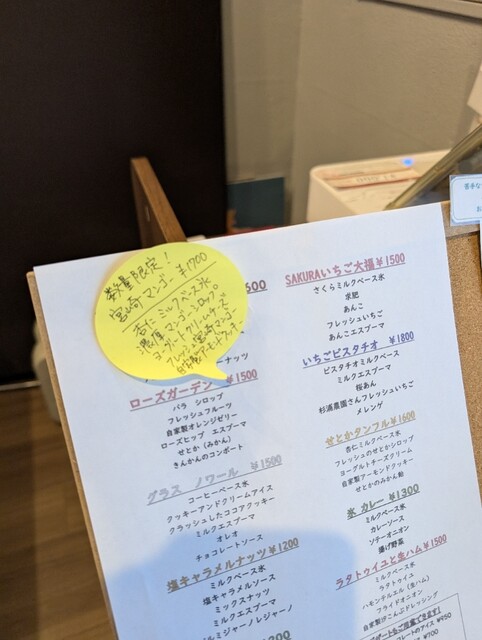 数量限定!
宮崎マンゴー ¥1700
杏仁ミルクベース氷
濃厚マンゴーシロップ。
ヨーグルトクリームチーズ
フレッシュ宮崎マンゴー
600
ナッツ
ローズガーデン ¥1500
バラ シロップ
フレッシュフルーツ
自家製オレンジゼリー
ローズヒップ エスプーマ
せとか(みかん)
きんかんのコンポート
グラス ノワール ¥1500
コーヒーベース氷
クッキーアンドクリームアイス
クラッシュしたココアクッキー
ミルクエスプーマ
オレオ
チョコレートソース
塩キャラメルナッツ ¥1200
ミルクベース氷
塩キャラメルソース
ミックスナッツ
ミルクエスプーマ
ルミジャーノレジャーノ
SAKURAいちご大福 ¥1500
さくらミルクベース氷
求肥
あんこ
フレッシュいちご
あんこエスプーマ
いちごピスタチオ ¥1800
ピスタチオミルクベース
ミルクエスプーマ
桜あん
杉浦農園さんフレッシュいちご
メレンゲ
せとかタンフル ¥1600
杏仁ミルクベース氷
フレッシュのせとかシロップ
ヨーグルトチーズクリーム
自家製アーモンドクッキー
せとかのみかん飴
氷 カレー ¥1300
ミルクベース氷
カレーソース
ソテーオニオン
揚げ野菜
ラタトゥイユと生ハム ¥1500
ミルクベース氷
ラタトゥイユ
ハモンテルエル(生ハム)
フライドオニオン
自家製はこんぶドレッシング